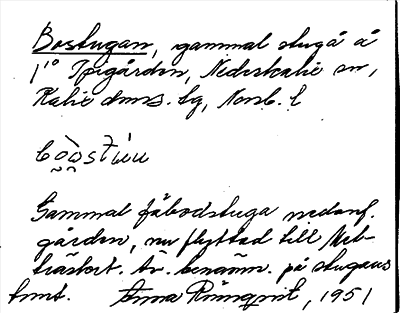 Bostugan, gammal stuga å
1° Ppigården, Nederkalix sn,
Kalix dmss. tg, Norrb. l
Gammal fäbodstuga nedanf.
gården, nu flyttad till Neb-
. Ev. benämn. på stugans
tomt. Anna Rönnqvist, 1951